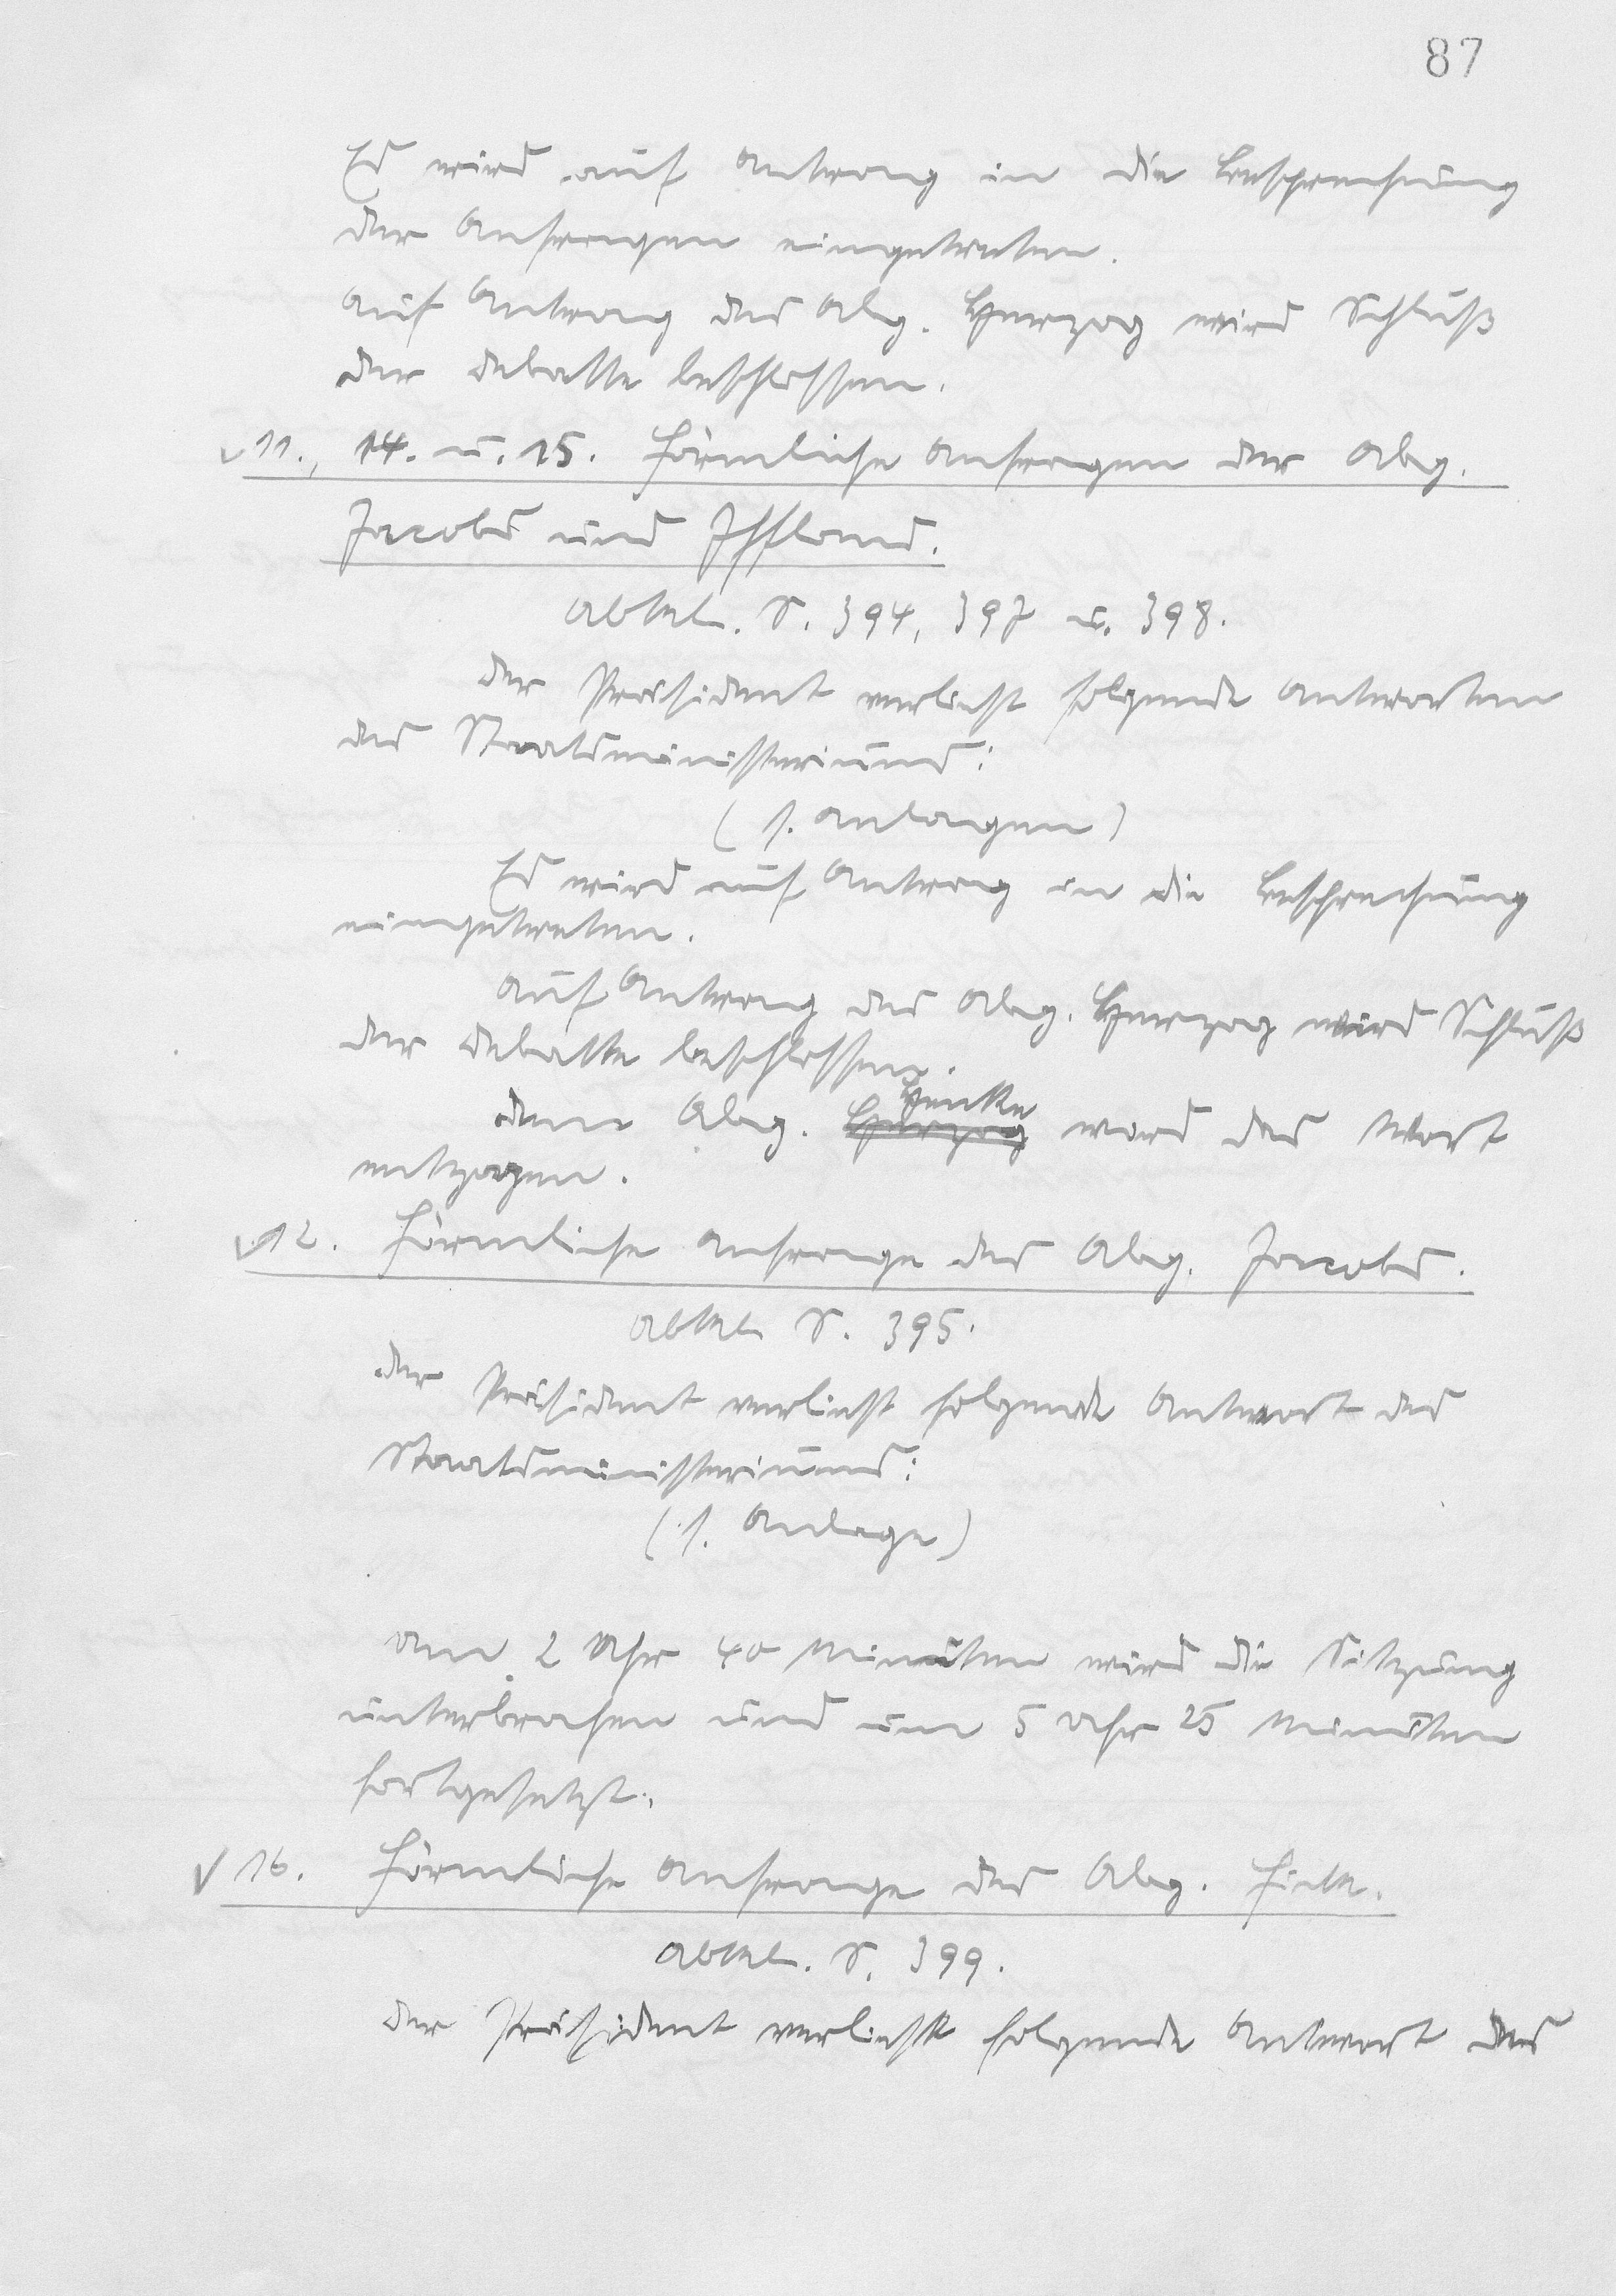 87
Es wird auf Antrag in die Besprechung
der Anfragen eingetreten.
Auf Antrag des Abg. Herzog wird Schluß
der Debatte beschlossen.
11., 14. u. 15. Förmliche Anfragen der Abg.
Jacobs und Iffland.
Abtlg. S. 394, 397 u. 398.
Der Präsident verliest folgende Antworten
des Staatsministeriums:
(s. Anlagen)
Es wird auf Antrag in die Besprechung
eingetreten.
Auf Antrag des Abg. Herzog wird Schluß
der Debatte beschlossen.
Henke
Dem Abg. Herzog ward das Wort
entzogen.
12. Förmliche Anfrage des Abg. Jacobs.
S. 395.
Der Präsident verliest folgende Antwort des
Staatsministeriums:
(s. Anlage)
Um 2 Uhr 40 Minuten wird die Sitzung
unterbrochen und um 5 Uhr 25 Minuten
fortgesetzt.
16. Förmliche Anfrage des Abg. Fick.
S. 399.
Der Präsident verliest folgende Antwort des